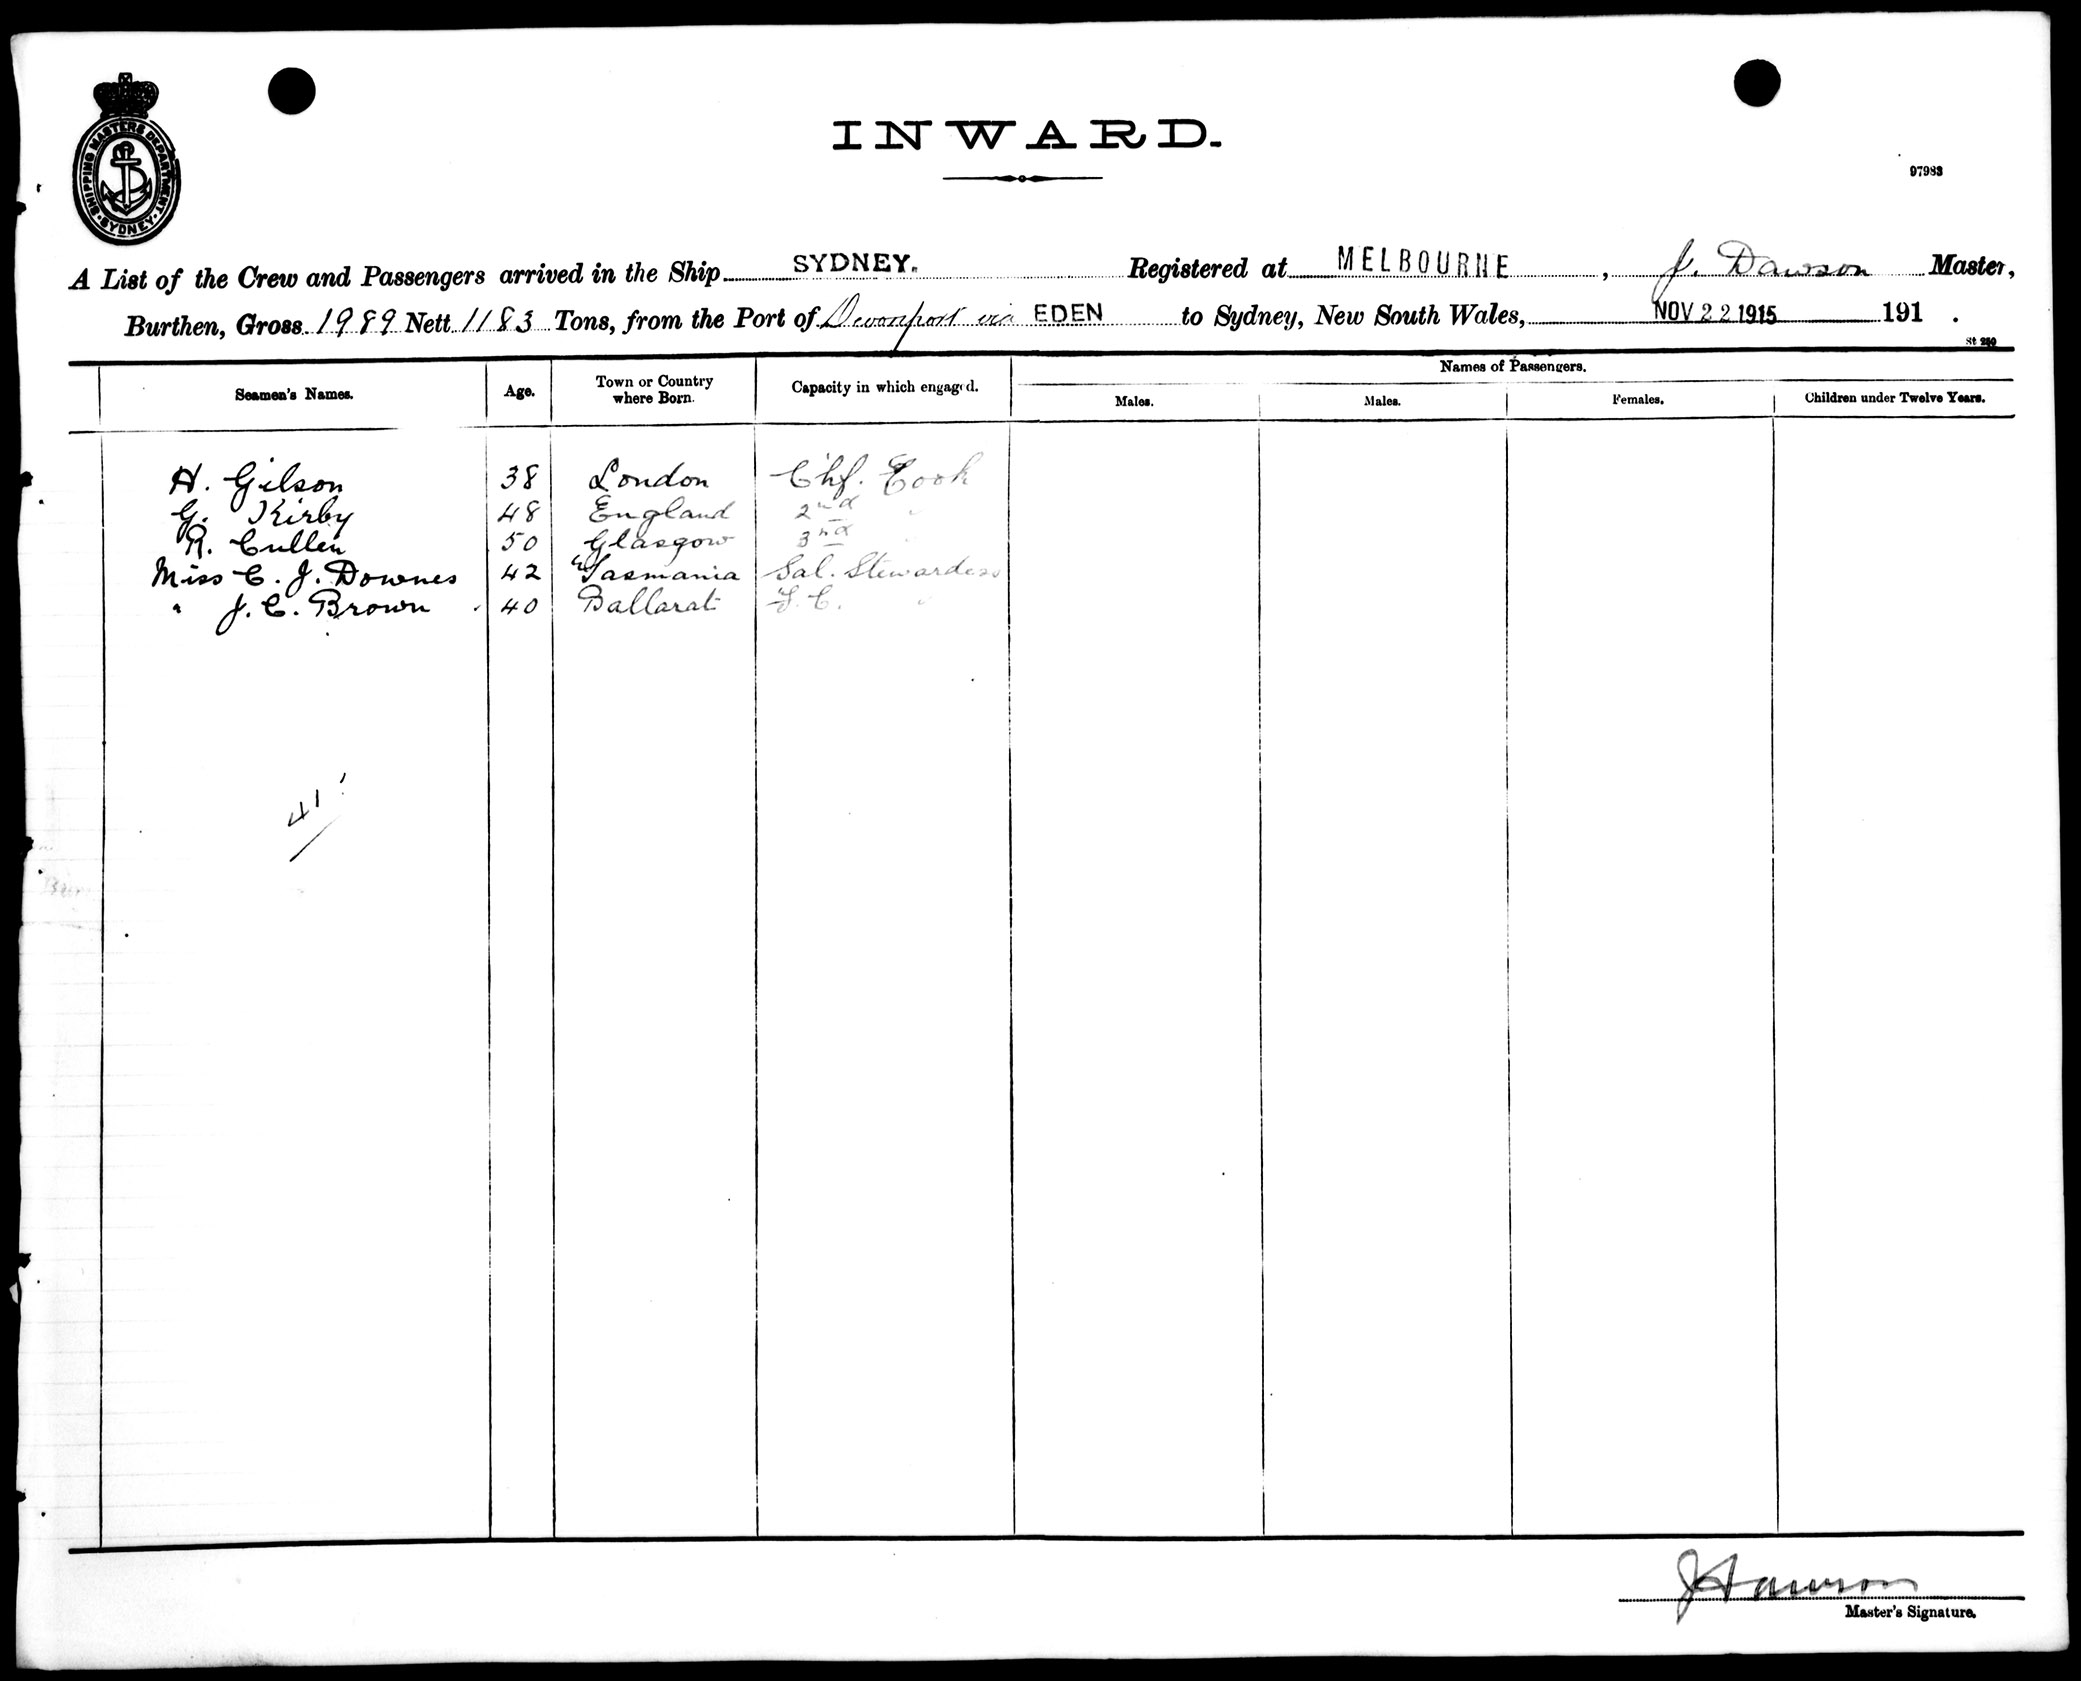 SHIPPING MASTERS DEPARTMENT. SYDNEY.
INWARD.
97983
A List of the Crew and Passengers arrived in the Ship SYDNEY. Registered at MELBOURNE, J. Dawson Master,
Burthen, Gross 1989 Nett 1183 Tons, from the Port of Devonport via EDEN to Sydney, New South Wales, NOV 22 1915 191 .
St 280
Seamen's Names. Age. Town or Country where Born. Capacity in which engaged. Names of Passengers.
Males. Males. Females. Children under Twelve Years.
H. Gilson 38 London Chf. Cook
G. Kirby 48 England 2nd "
R. Cullen 50 Glasgow 3rd "
Miss C. J. Downes 42 Tasmania Sal. Stewardess
" J. C. Brown 40 Ballarat F. C. "
41
J Dawson
Master's Signature.